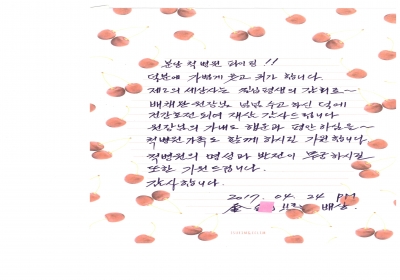 분당 척병원 파이팅 !!
덕분에 가볍게 웃고 퇴가 합니다.
제2의 세상사는 평생의 감회로~
배채완 원장님 넘넘 수고하신 덕에
건강호전되어 재삼 감사드립니다.
원장님의 가내도 행운과 평안하심을~
척병원 가족도 함께 하시길 기원합니다.
척병원의 명성과 발전이 무궁하시길
또한 기원드립니다.
감사합니다.
2017. 04. 24 PM
金 배상